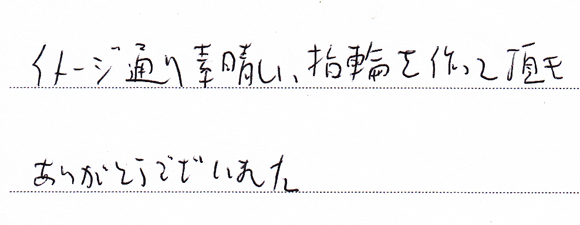 イメージ通り素晴しい、指輪を作って頂き
ありがとうございました